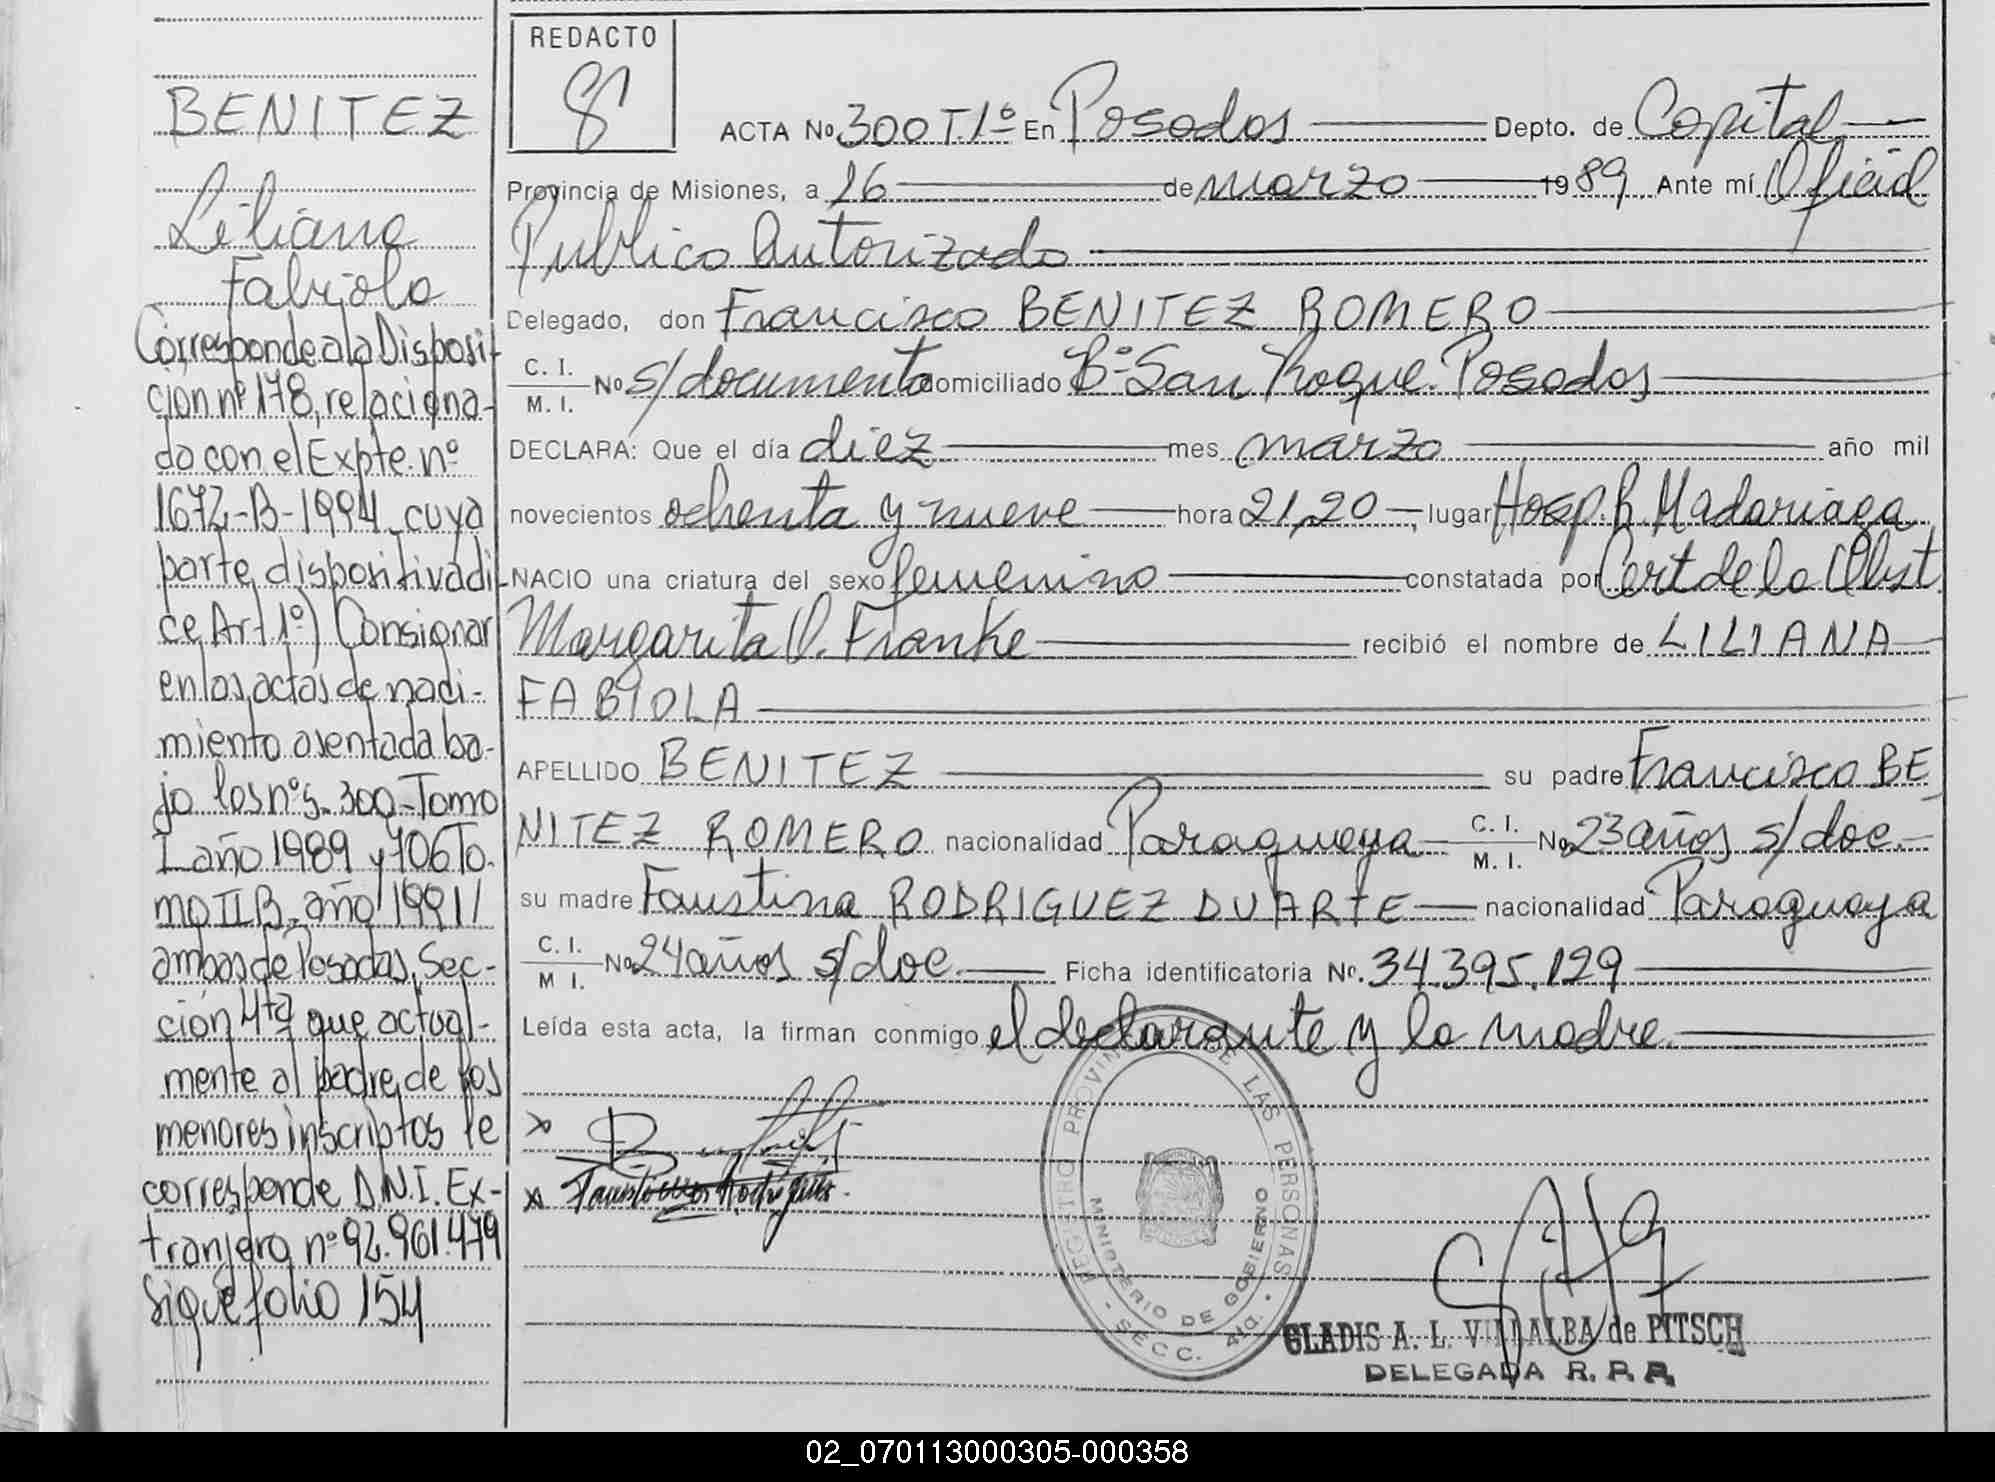 BENITEZ
Liliana
Fabiola
Corresponde a la Disposi-
ción nº 178, relaciona-
da con el Expte. nº
1672-B-1994, cuya
parte dispositiva di-
ce Art 1º) Consignar
en las actas de naci-
miento asentada ba-
jo los nºs. 300-Tomo
I año 1989 y 706 To-
mo II B, año 1991/
ambas de Posadas, Sec-
ción 4ta que actual-
mente al padre de los
menores inscriptos le
corresponde D.N.I. Ex-
tranjero nº 92.961.479
Sigue folio 154
REDACTO
ACTA No 300 T.1º En Posadas Depto. de Capital
Provincia de Misiones, a 16 de marzo 1989 Ante mí Oficial
Publico Autorizado
Delegado, don Francisco BENITEZ ROMERO
C. I.
M. I.
No s/documento domiciliado Bº San Roque. Posadas
DECLARA: Que el día diez mes marzo año mil
novecientos ochenta y nueve hora 21,20, lugar Hosp. R. Madariaga
NACIO una criatura del sexo femenino constatada por Cert de la Obst.
Margarita O. Franke recibió el nombre de LILIANA
FABIOLA
APELLIDO BENITEZ su padre Francisco BE
NITEZ ROMERO nacionalidad Paraguaya C. I. M. I. No 23 años s/doc.
su madre Faustina RODRIGUEZ DUARTE nacionalidad Paraguaya
C. I. M I. No 24 años s/doc. Ficha identificatoria No. 34.395.129
Leída esta acta, la firman conmigo el declarante y la madre.
x
x Faustina Rodriguez
REGISTRO PROVINCIAL DE LAS PERSONAS
MINISTERIO DE GOBIERNO
SECC. 4ta.
GLADIS A. L. VILLALBA de PITSCH
DELEGADA R. P. P.
02_070113000305-000358